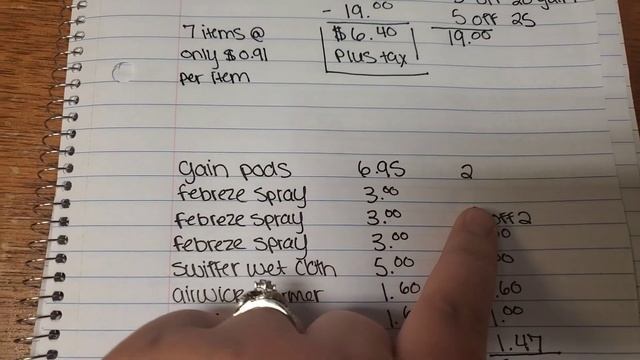 5 off 20 gain
- 19.00 5 off 25
7 items @ $6.40 19.00
only $0.91 plus tax
per item
gain pods 6.95 2
febreze spray 3.00
febreze spray 3.00 off 2
febreze spray 3.00
swiffer wet cloth 5.00
airwick 1.60 .60
1.00
1.47